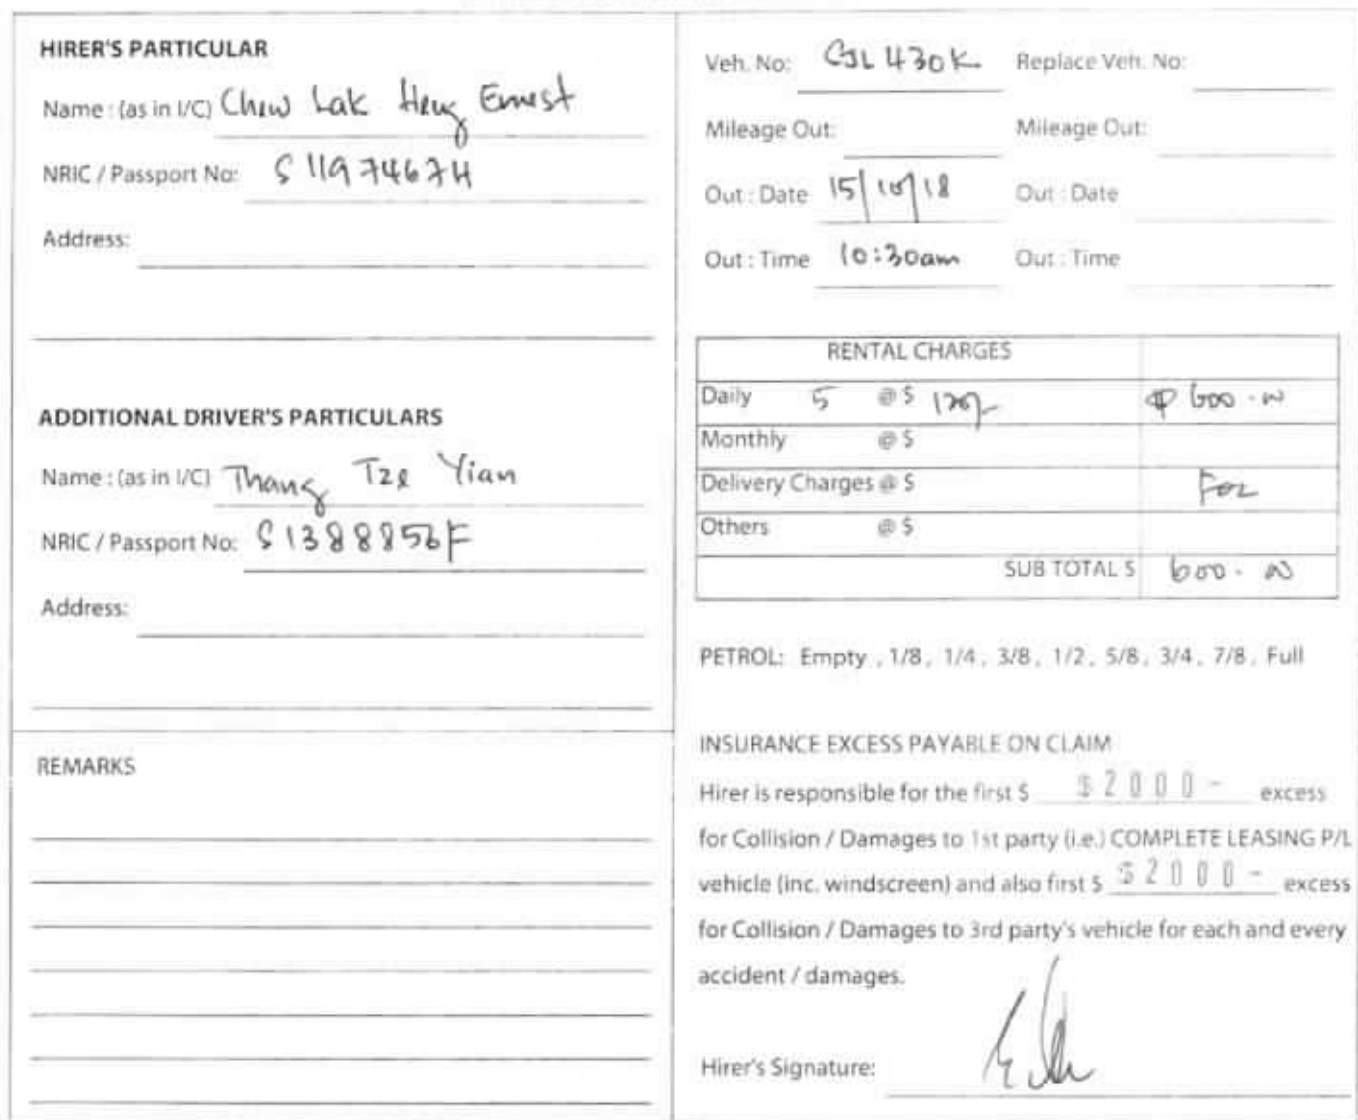 HIRER'S PARTICULAR
Name : (as in I/C) Chew Lak Heng Ernest
NRIC / Passport No: S1197467H
Address:
ADDITIONAL DRIVER'S PARTICULARS
Name : (as in I/C) Thang Tze Yian
NRIC / Passport No: S1388856F
Address:
REMARKS
Veh. No: GJL 430K Replace Veh. No:
Mileage Out: Mileage Out:
Out : Date 15/10/18 Out : Date
Out : Time 10:30am Out : Time
RENTAL CHARGES
Daily 5 @ $ 120/- $ 600.00
Monthly @ $
Delivery Charges @ $
Others @ $
SUB TOTAL $ 600.00
PETROL: Empty , 1/8 , 1/4 , 3/8 , 1/2 , 5/8 , 3/4 , 7/8 , Full
INSURANCE EXCESS PAYABLE ON CLAIM
Hirer is responsible for the first $ $2000- excess
for Collision / Damages to 1st party (i.e.) COMPLETE LEASING P/L
vehicle (inc. windscreen) and also first $ $2000- excess
for Collision / Damages to 3rd party's vehicle for each and every
accident / damages.
Hirer's Signature: